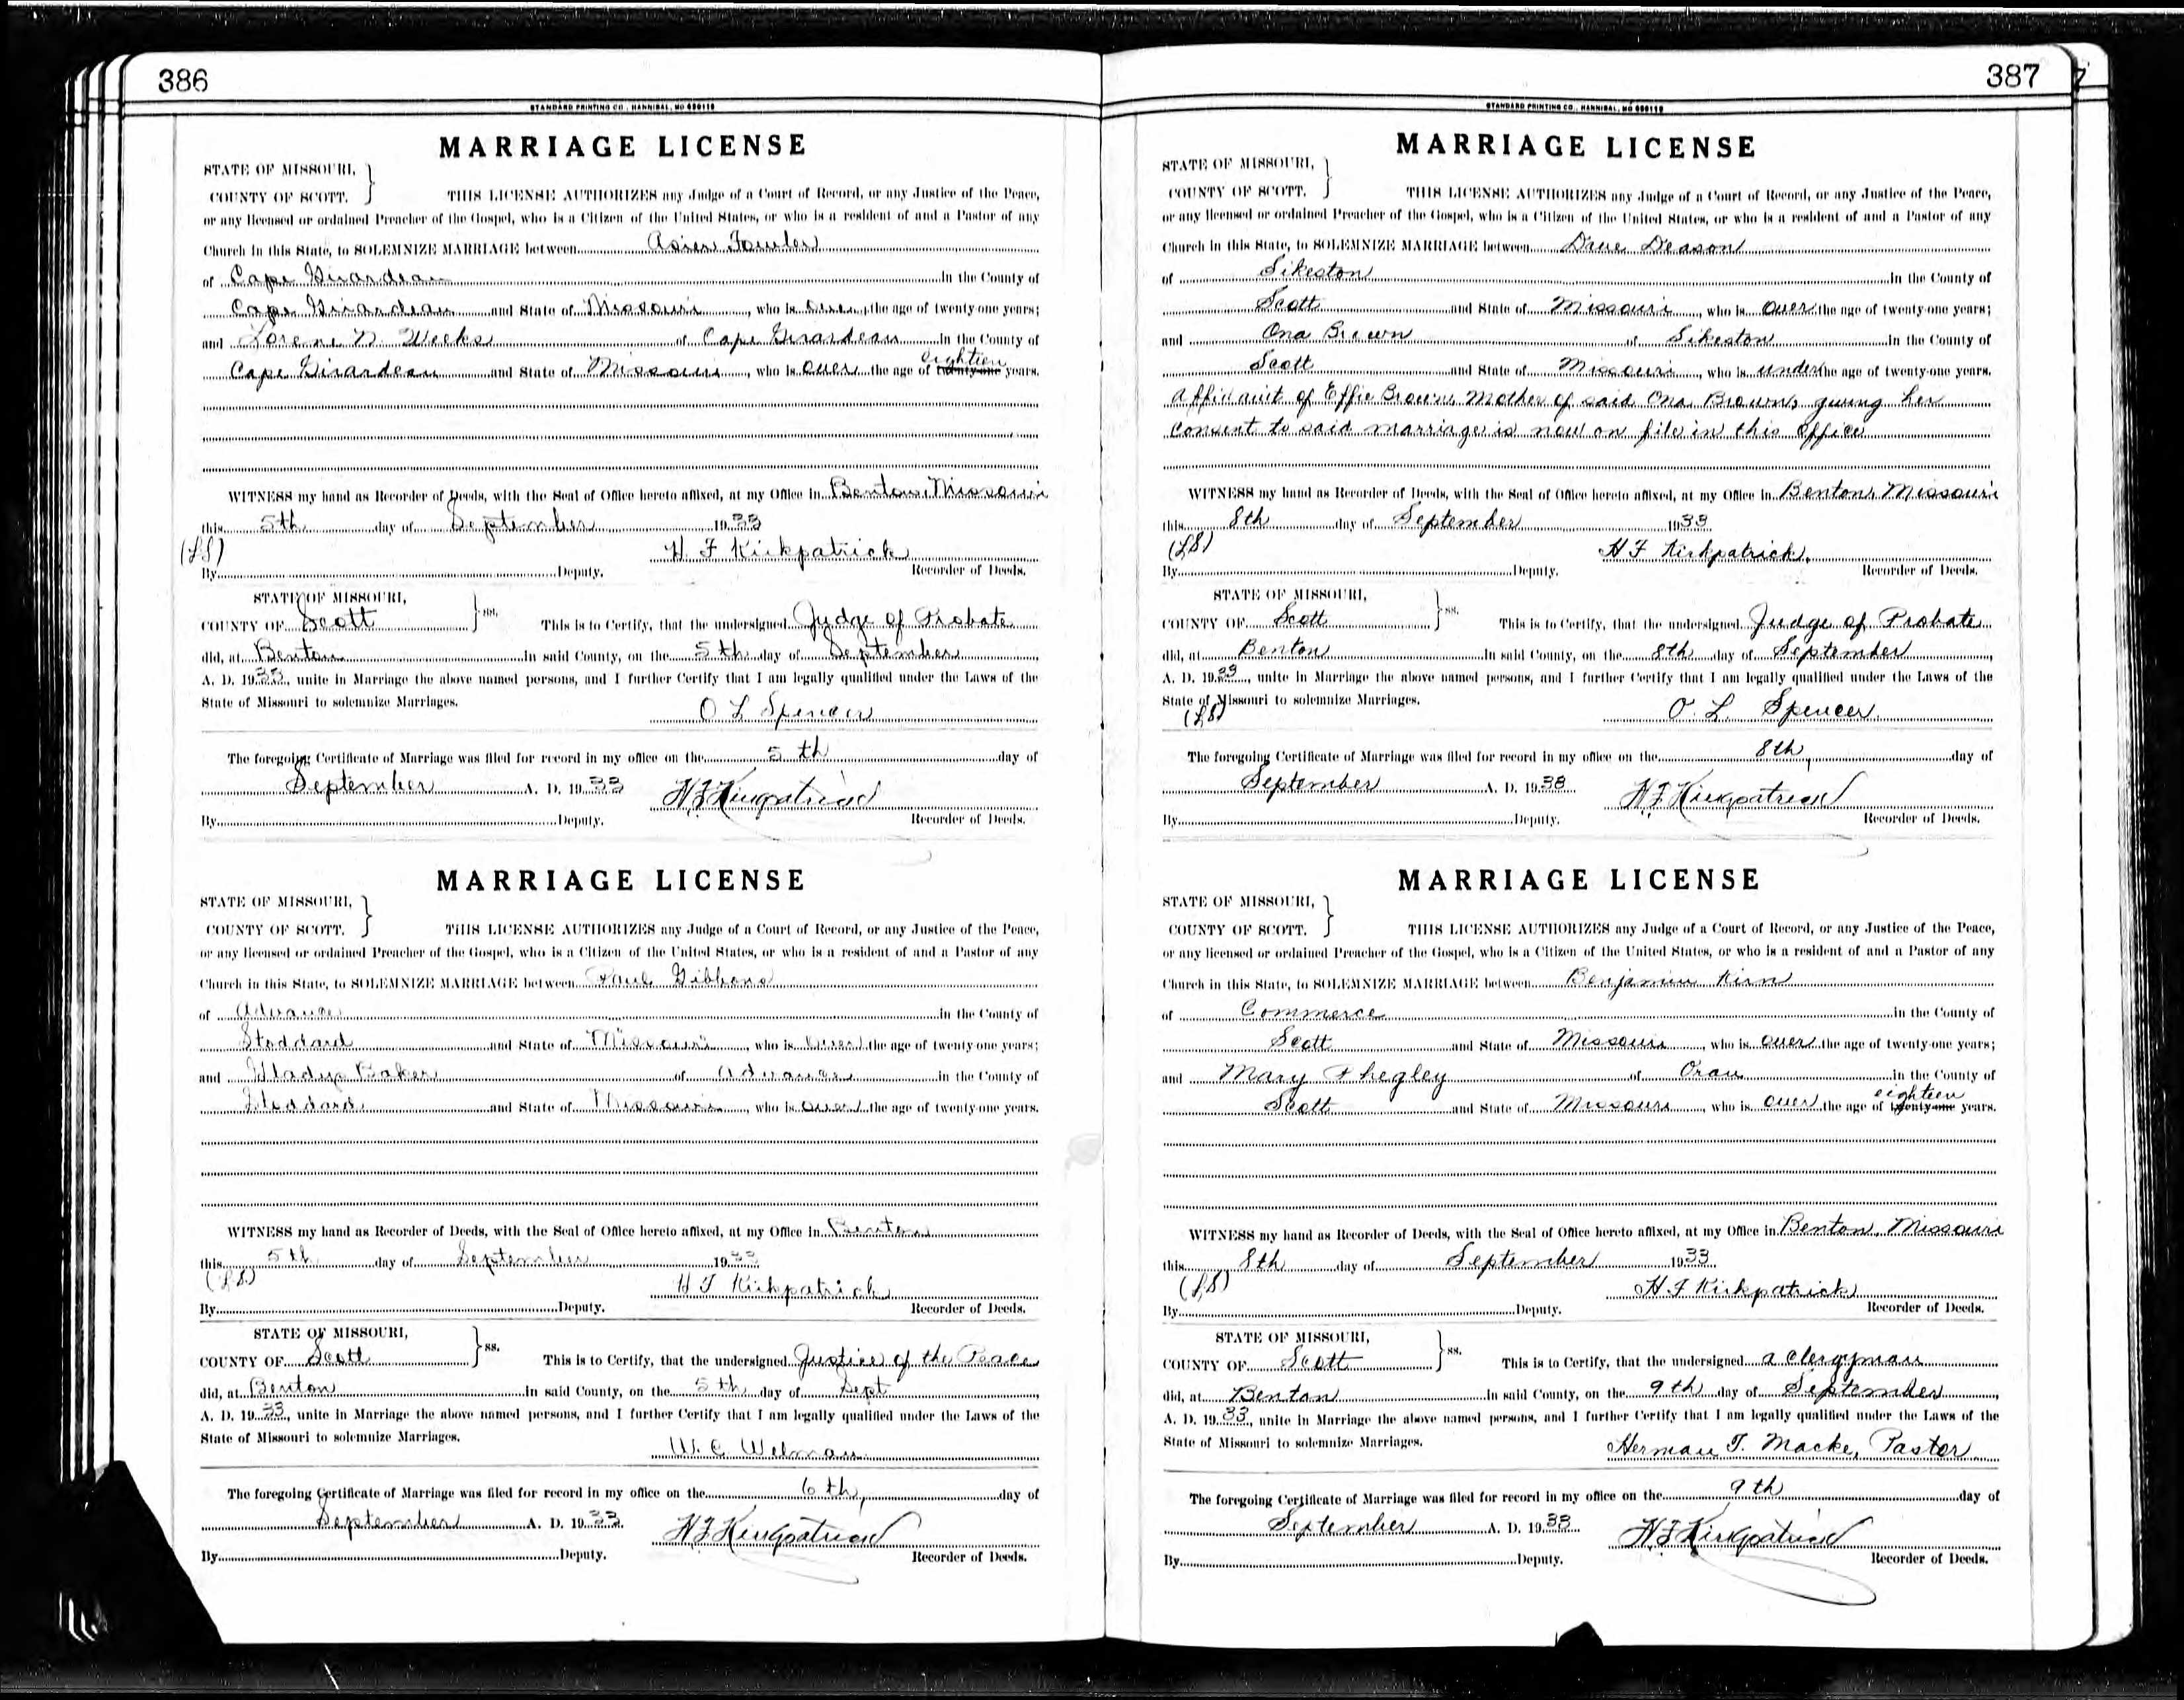 386
STANDARD PRINTING CO., HANNIBAL, MO
MARRIAGE LICENSE
STATE OF MISSOURI,
COUNTY OF SCOTT. THIS LICENSE AUTHORIZES any Judge of a Court of Record, or any Justice of the Peace,
or any licensed or ordained Preacher of the Gospel, who is a Citizen of the United States, or who is a resident of and a Pastor of any
Church in this State, to SOLEMNIZE MARRIAGE between Fowler
of Cape Girardeau in the County of
Cape Girardeau and State of Missouri, who is over the age of twenty-one years;
and Lorene N. Weeks of Cape Girardeau in the County of
eighteen
Cape Girardeau and State of Missouri, who is over the age of twenty-one years.
WITNESS my hand as Recorder of Deeds, with the Seal of Office hereto affixed, at my Office in Benton, Missouri
this 5th day of September 1933
(LS) H F Kirkpatrick
By Deputy. Recorder of Deeds.
STATE OF MISSOURI,
COUNTY OF Scott ss. This is to Certify, that the undersigned Judge of Probate
did, at Benton in said County, on the 5th day of September,
A. D. 1933, unite in Marriage the above named persons, and I further Certify that I am legally qualified under the Laws of the
State of Missouri to solemnize Marriages. O L Spencer
The foregoing Certificate of Marriage was filed for record in my office on the 5th day of
September A. D. 1933 H F Kirkpatrick
By Deputy. Recorder of Deeds.
MARRIAGE LICENSE
STATE OF MISSOURI,
COUNTY OF SCOTT. THIS LICENSE AUTHORIZES any Judge of a Court of Record, or any Justice of the Peace,
or any licensed or ordained Preacher of the Gospel, who is a Citizen of the United States, or who is a resident of and a Pastor of any
Church in this State, to SOLEMNIZE MARRIAGE between Paul Gibbons
of Advance in the County of
Stoddard and State of Missouri, who is over the age of twenty-one years;
and Gladys Baker of Advance in the County of
Stoddard and State of Missouri, who is over the age of twenty-one years.
WITNESS my hand as Recorder of Deeds, with the Seal of Office hereto affixed, at my Office in Benton
this 5th day of September 1933
(LS) H F Kirkpatrick
By Deputy. Recorder of Deeds.
STATE OF MISSOURI,
COUNTY OF Scott ss. This is to Certify, that the undersigned Justice of the Peace
did, at Benton in said County, on the 5th day of Sept,
A. D. 1933, unite in Marriage the above named persons, and I further Certify that I am legally qualified under the Laws of the
State of Missouri to solemnize Marriages. W. C. Welman
The foregoing Certificate of Marriage was filed for record in my office on the 6th, day of
September A. D. 1933. H F Kirkpatrick
By Deputy. Recorder of Deeds.
387
STANDARD PRINTING CO., HANNIBAL, MO
MARRIAGE LICENSE
STATE OF MISSOURI,
COUNTY OF SCOTT. THIS LICENSE AUTHORIZES any Judge of a Court of Record, or any Justice of the Peace,
or any licensed or ordained Preacher of the Gospel, who is a Citizen of the United States, or who is a resident of and a Pastor of any
Church in this State, to SOLEMNIZE MARRIAGE between Drue Deason
of Sikeston in the County of
Scott and State of Missouri, who is over the age of twenty-one years;
and Ona Brown of Sikeston in the County of
Scott and State of Missouri, who is under the age of twenty-one years.
Affidavit of Effie Brown Mother of said Ona Brown, giving her
Consent to said marriage is now on file in this Office
WITNESS my hand as Recorder of Deeds, with the Seal of Office hereto affixed, at my Office in Benton, Missouri
this 8th day of September 1933
(LS) H F Kirkpatrick,
By Deputy. Recorder of Deeds.
STATE OF MISSOURI,
COUNTY OF Scott ss. This is to Certify, that the undersigned Judge of Probate
did, at Benton in said County, on the 8th day of September,
A. D. 1933, unite in Marriage the above named persons, and I further Certify that I am legally qualified under the Laws of the
State of Missouri to solemnize Marriages.
(LS) O. L. Spencer
The foregoing Certificate of Marriage was filed for record in my office on the 8th, day of
September A. D. 1933. H F Kirkpatrick
By Deputy. Recorder of Deeds.
MARRIAGE LICENSE
STATE OF MISSOURI,
COUNTY OF SCOTT. THIS LICENSE AUTHORIZES any Judge of a Court of Record, or any Justice of the Peace,
or any licensed or ordained Preacher of the Gospel, who is a Citizen of the United States, or who is a resident of and a Pastor of any
Church in this State, to SOLEMNIZE MARRIAGE between Benjamin Kirn
of Commerce in the County of
Scott and State of Missouri, who is over the age of twenty-one years;
and Mary Phegley of Oran in the County of
eighteen
Scott and State of Missouri, who is over the age of twenty-one years.
WITNESS my hand as Recorder of Deeds, with the Seal of Office hereto affixed, at my Office in Benton, Missouri
this 8th day of September 1933
(LS) H F Kirkpatrick
By Deputy. Recorder of Deeds.
STATE OF MISSOURI,
COUNTY OF Scott ss. This is to Certify, that the undersigned a Clergyman
did, at Benton in said County, on the 9th day of September,
A. D. 1933, unite in Marriage the above named persons, and I further Certify that I am legally qualified under the Laws of the
State of Missouri to solemnize Marriages. Herman T. Macke, Pastor
The foregoing Certificate of Marriage was filed for record in my office on the 9th day of
September A. D. 1933. H F Kirkpatrick
By Deputy. Recorder of Deeds.